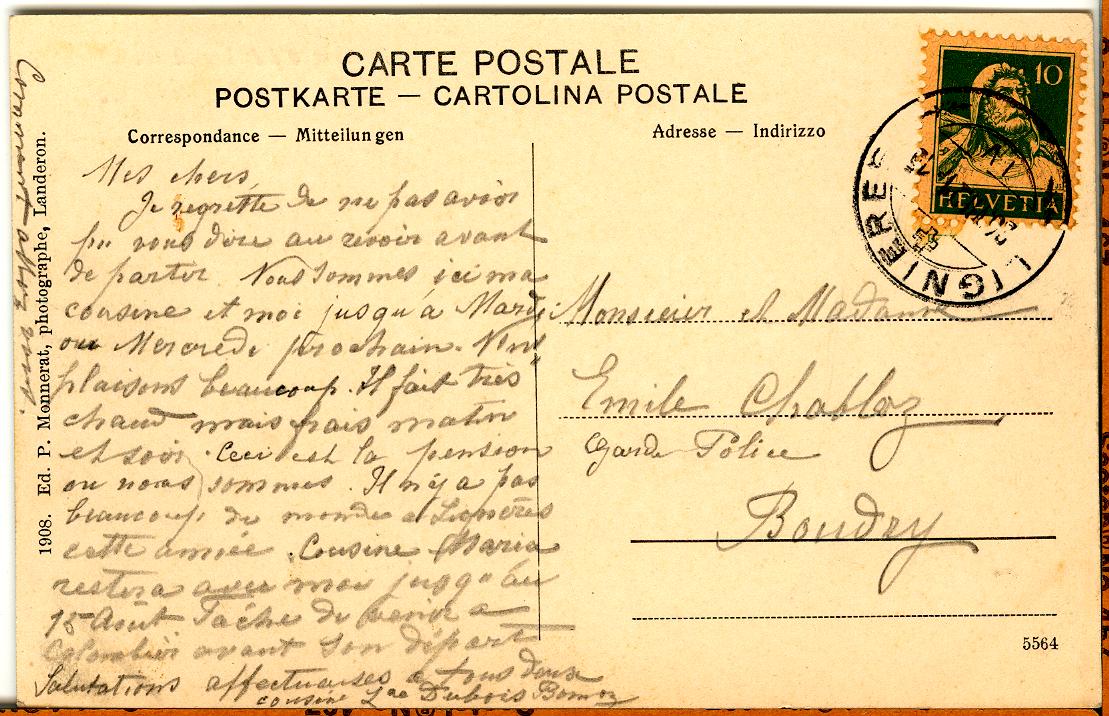 CARTE POSTALE
POSTKARTE — CARTOLINA POSTALE
Correspondance — Mitteilungen
Adresse — Indirizzo
10
HELVETIA
LIGNIERES
Mes chers
Je regrette de ne pas avoir
pu vous dire au revoir avant
de partir. Nous sommes ici ma
cousine et moi jusqu'à Mardi
ou Mercredi prochain.
plaisons beaucoup. Il fait très
chaud mais frais matin
et soir. Ceci est la pension
ou nous sommes. Il n'y a pas
beaucoup de monde a Lignères
cette année. Cousine Maria
restera avec moi jusqu'au
15 Août Tâche de venir a
Colombier avant son départ
Salutations affectueuses a tous deux
cousine Dubois
Comment allez vous
Monsieur et Madame
Emile Chabloz
Garde Police
Boudry
5564
1908. Ed. P. Monnerat, photographe, Landeron.